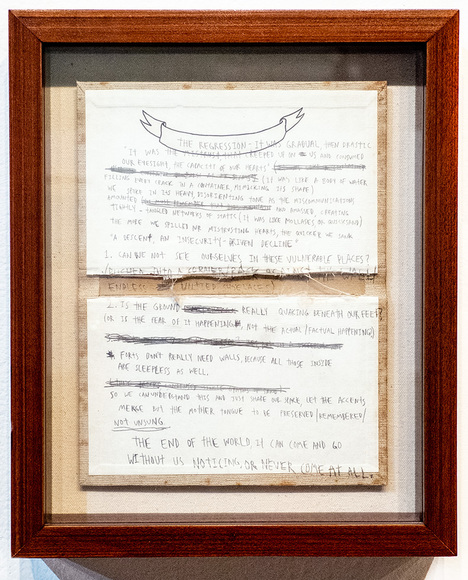 THE REGRESSION - IT WAS GRADUAL, THEN DRASTIC
"IT WAS THE THAT CREEPED UP ON US AND CONSUMED
OUR EYESIGHT, THE CAPACITY OF OUR HEARTS"
(IT WAS LIKE A BODY OF WATER
FILLING EVERY SPACE IN A CONTAINER, MIMICKING ITS SHAPE)
WE SPOKE IN ITS HEAVY, DISORIENTING TONE AS THE MISCOMMUNICATIONS
AND AMASSED, CREATING
TIGHTLY - TANGLED NETWORKS OF STATIC (IT WAS LIKE MOLLASES OR QUICKSAND)
THE MORE WE SPILLED OUR MISTRUSTING HEARTS, THE QUICKER WE SUNK
"A DESCENT, AN INSECURITY-DRIVEN DECLINE"
1. CAN WE NOT SEE OURSELVES IN THESE VULNERABLE PLACES?
INTO A
ENDLESS
2. IS THE GROUND REALLY QUACING BENEATH OUR FEET?
(OR IS THE FEAR OF IT HAPPENING, NOT THE ACTUAL/FACTUAL HAPPENING)
FORTS DON'T REALLY NEED WALLS, BECAUSE ALL THOSE INSIDE
ARE SLEEPLESS AS WELL.
SO WE CAN UNDERSTAND THIS AND JUST SHARE OUR SPACE, LET THE ACCENTS
MERGE BUT THE MOTHER TONGUE TO BE PRESERVED/REMEMBERED/
NOT UNSUNG.
THE END OF THE WORLD, IT CAN COME AND GO
WITHOUT US NOTICING, OR NEVER COME AT ALL.